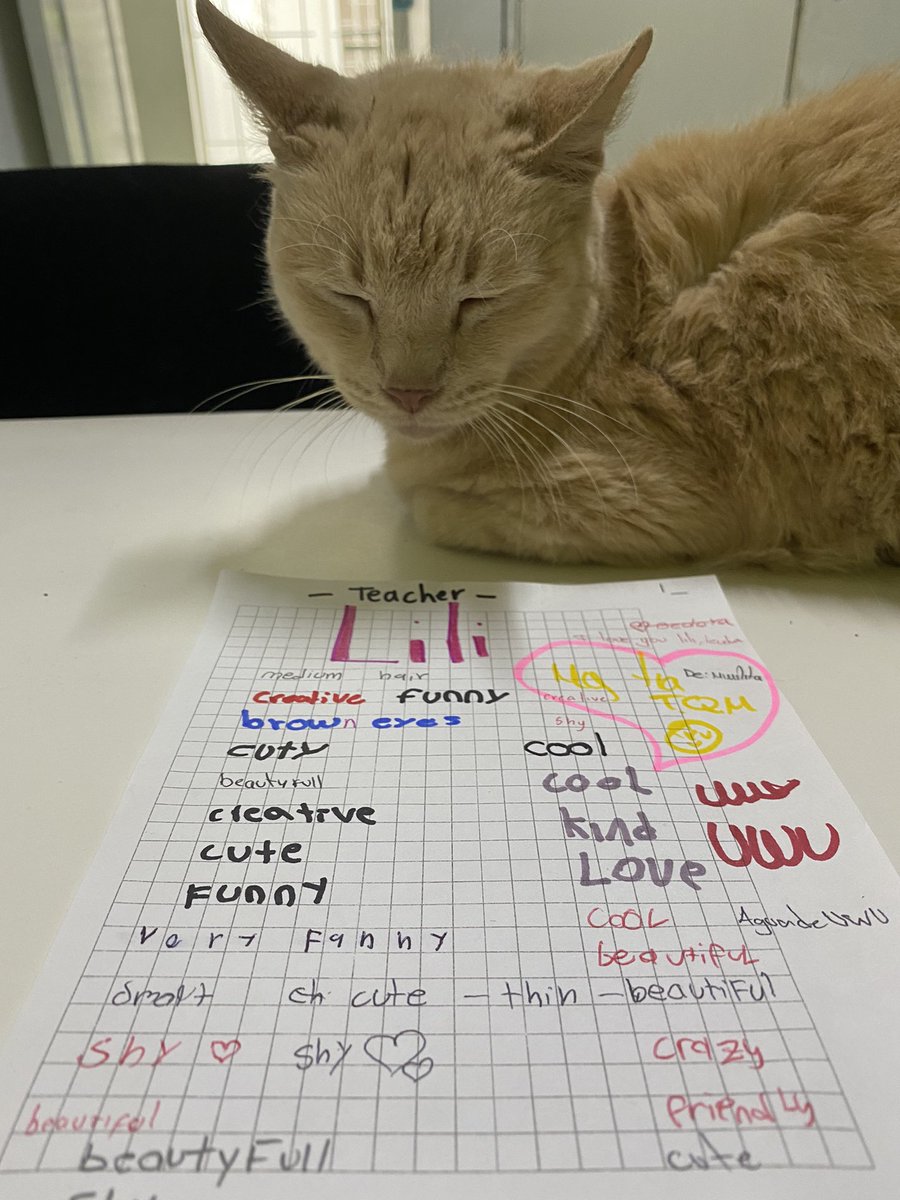 - Teacher -
Lili
I love you lili,
medium hair
De:
TQM
creative funny
creative
brown eyes
shy
cuty
cool
beautyfull
cool
uwu
creative
kind
UWU
cute
Love
Funny
cool
AguadeUWU
Very Fanny
beautiful
Smart ch cute - thin - beautiful
Shy
shy
crazy
beautiful
friendly
beautyFull
cute